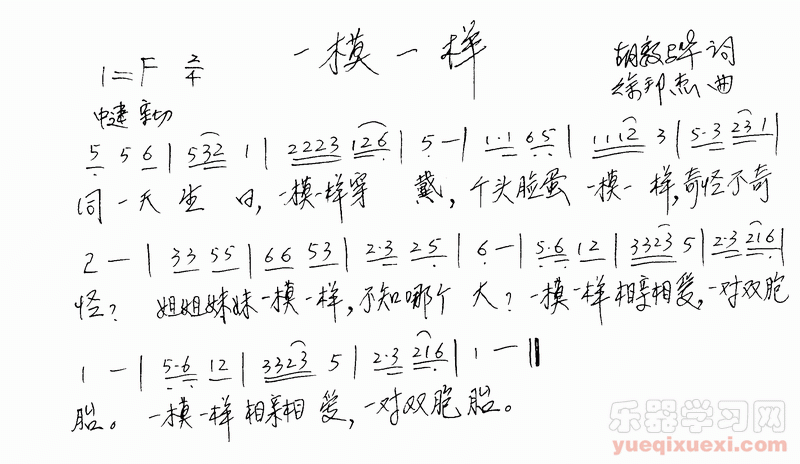 一模一样
1=F 2/4
胡敦骅 词
徐邦杰 曲
中速 亲切
5 5 6 | 532 1 | 2223 126 | 5 — | 1·1 65 | 1112 3 | 5·3 231 |
同一天生日,一模一样穿戴,个头脸蛋一模一样,奇怪不奇
2 — | 33 55 | 66 53 | 2·3 25 | 6 — | 5·6 12 | 3323 5 | 2·3 216 |
怪? 姐姐妹妹一模一样,不知哪个大?一模一样相亲相爱,一对双胞
1 — | 5·6 12 | 3323 5 | 2·3 216 | 1 — ‖
胎。一模一样相亲相爱,一对双胞胎。
乐器学习网
yueqixuexi.com